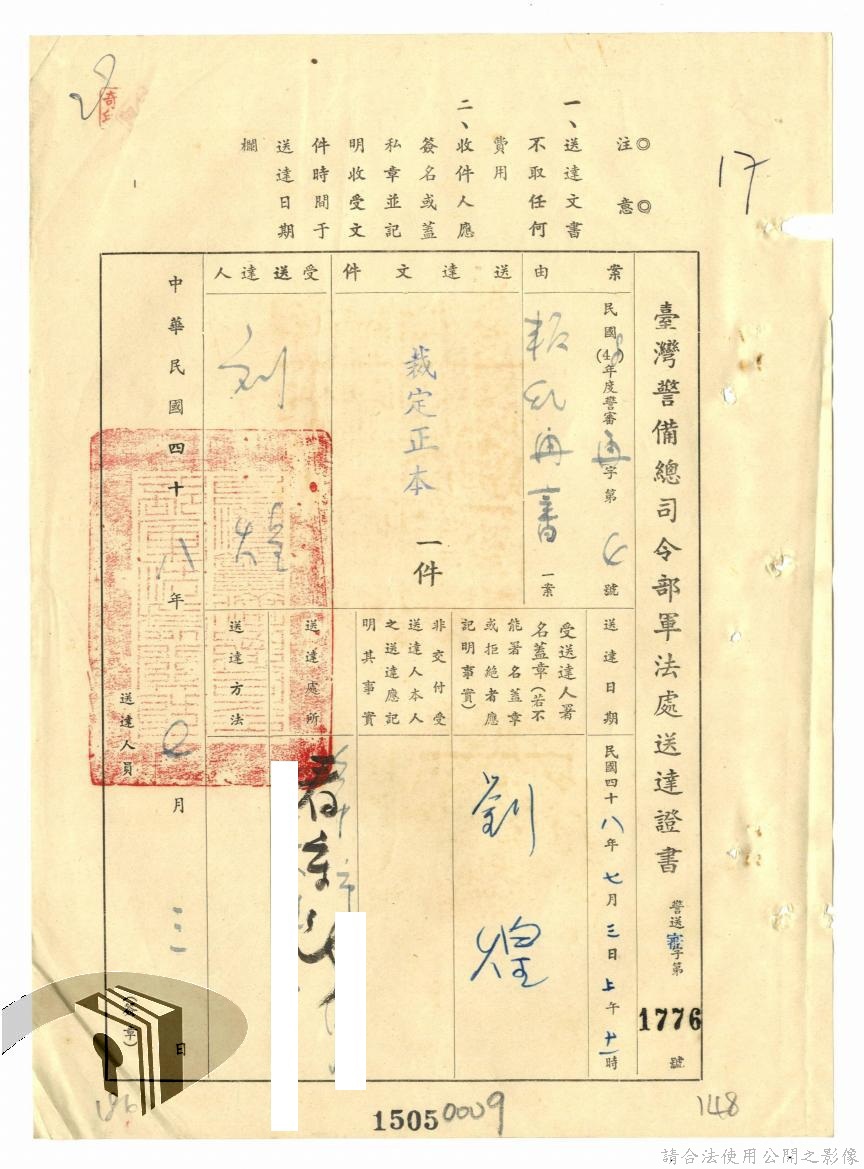 17
◎注意◎
一、送達文書
不取任何
費用
二、收件人應
簽名或蓋
私章並記
明收受文
件時間于
送達日期
欄
臺灣警備總司令部軍法處送達證書
警送審字第
1776
號
案由
民國(4 )年度警審 字第 號
叛亂 書
一案
送達文件
裁定正本 一件
受送達人
刘 煌
送達日期
民國四十八年七月三日上午十一時
受送達人署
名蓋章(若不
能署名蓋章
或拒絕者應
記明事實)
劉 煌
非交付受
送達人本人
之送達應記
明其事實
送達處所
送達方法
中華民國四十八年 月三日
送達人員
(簽章)
1505
0009
148
186
請合法使用公開之影像